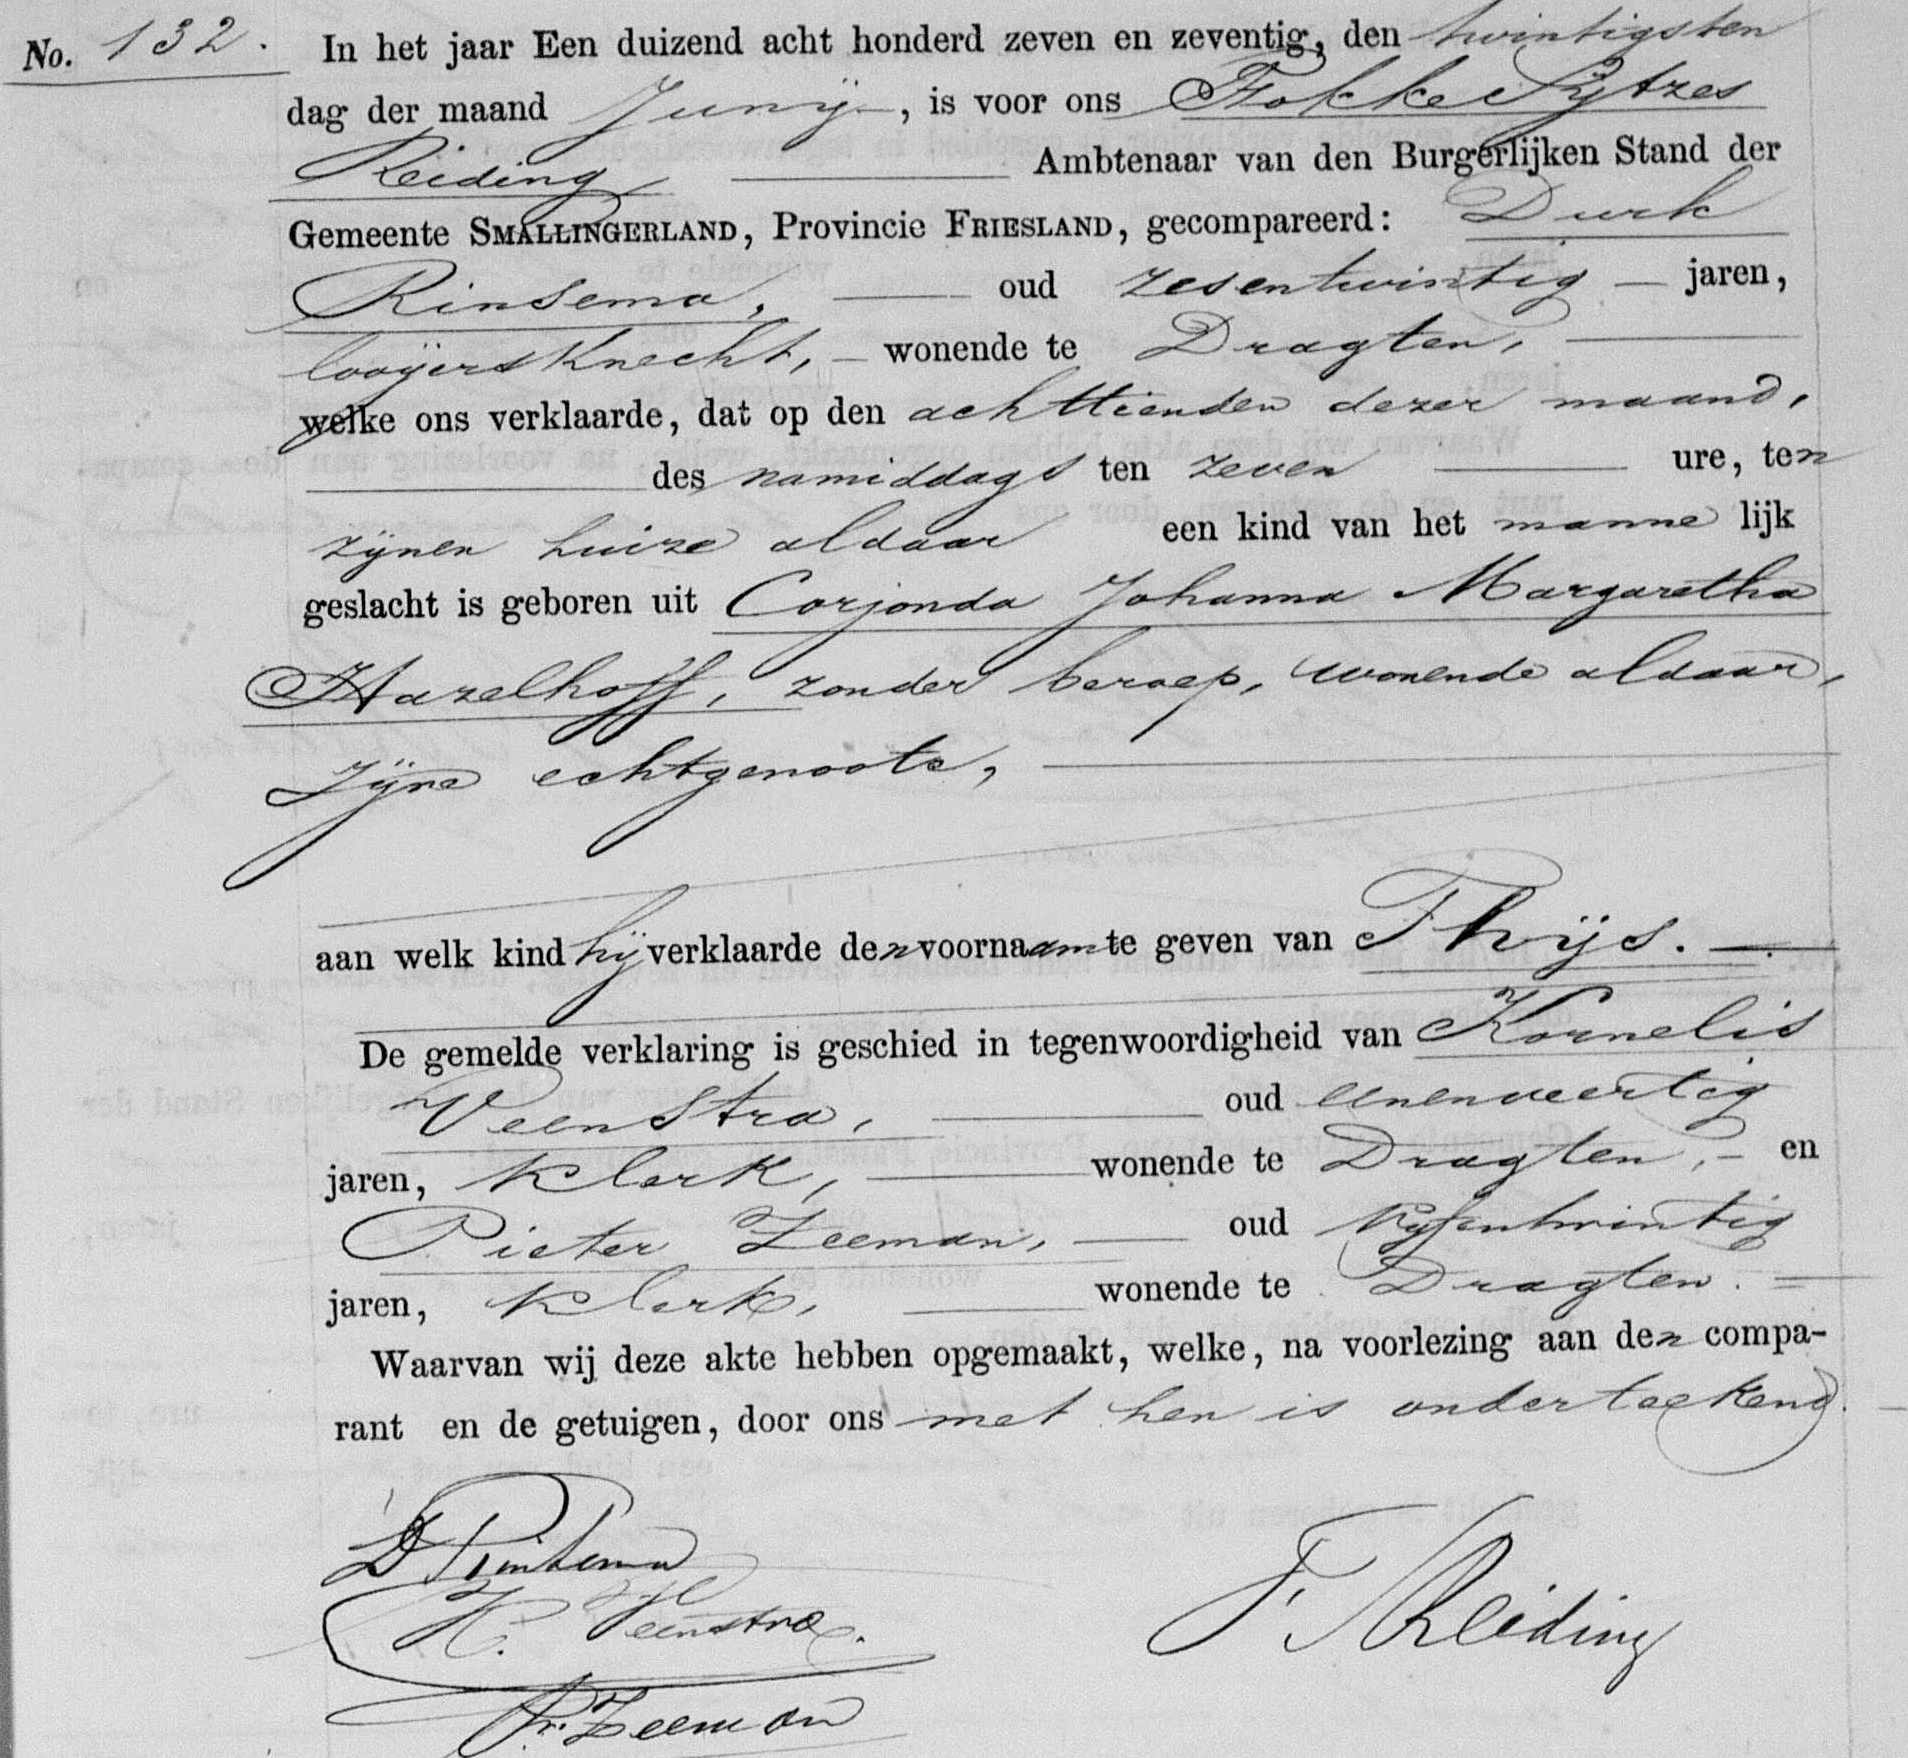 No. 132. In het jaar Een duizend acht honderd zeven en zeventig, den twintigsten
dag der maand Junij, is voor ons Fokke Sytzes
Reiding Ambtenaar van den Burgerlijken Stand der
Gemeente SMALLINGERLAND, Provincie FRIESLAND, gecompareerd: Durk
Rinsema, oud zesentwintig jaren,
looijersknecht, wonende te Dragten,
welke ons verklaarde, dat op den achttienden dezer maand,
des namiddags ten zeven ure, ten
zijnen huize aldaar een kind van het mannelijk
geslacht is geboren uit Corjonda Johanna Margaretha
Hazelhoff, zonder beroep, wonende aldaar,
zijne echtgenoote,
aan welk kind hij verklaarde den voornaam te geven van Thijs.
De gemelde verklaring is geschied in tegenwoordigheid van Kornelis
Veenstra, oud eenenveertig
jaren, klerk, wonende te Dragten, en
Pieter Zeeman, oud vijfentwintig
jaren, klerk, wonende te Dragten.
Waarvan wij deze akte hebben opgemaakt, welke, na voorlezing aan den compa-
rant en de getuigen, door ons met hen is onderteekend.
D Rinsema
K. Veenstra.
F. Reiding
P. Zeeman